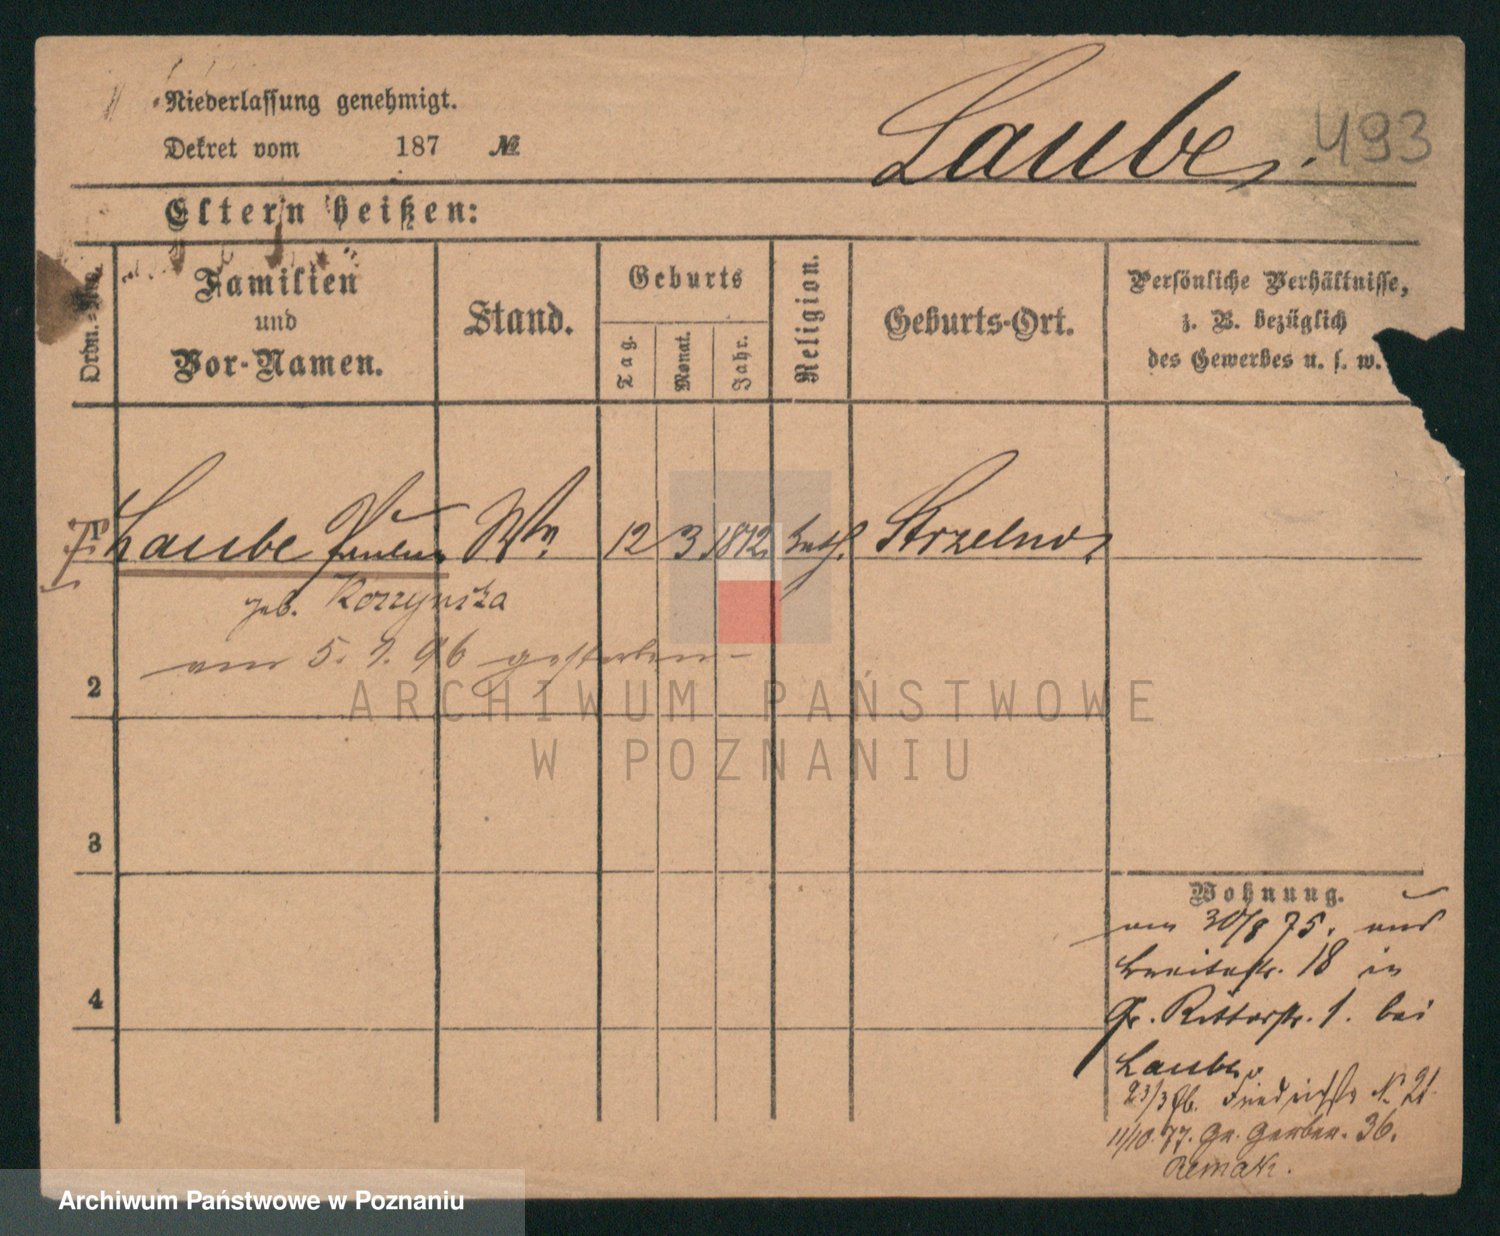 Niederlassung genehmigt.
Dekret vom 187 №
Laube.
493
Eltern heißen:
Ordn.-Nro.
Familien
und
Vor-Namen.
Stand.
Geburts
Tag.
Monat.
Jahr.
Religion.
Geburts-Ort.
Persönliche Verhältnisse,
z. B. bezüglich
des Gewerbes u. s. w.
Laube Paulina Ww 12 3 1812 kath. Strzelno
geb. Koszynska
am 5. 1. 96 gestorben
2
3
4
Wohnung.
am 30/8 75. aus
Breitestr. 18 in
Gr. Ritterstr. 1. bei
Laube
23/3 76. Friedrichstr N. 21
11/10. 77. Gr. Gerber. 36.
Remak.
ARCHIWUM PAŃSTWOWE
W POZNANIU
Archiwum Państwowe w Poznaniu